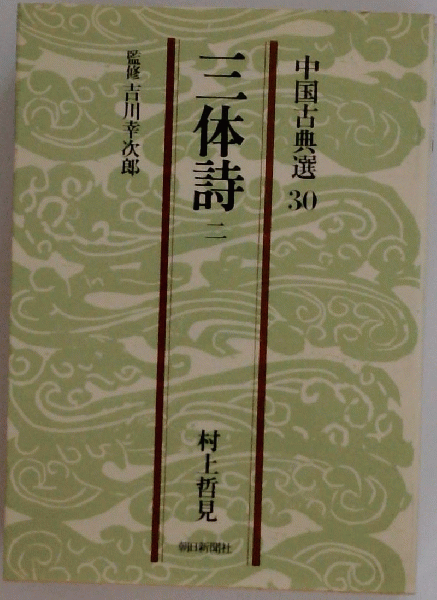 中国古典選 30
三体詩 二
監修 吉川幸次郎
村上哲見
朝日新聞社